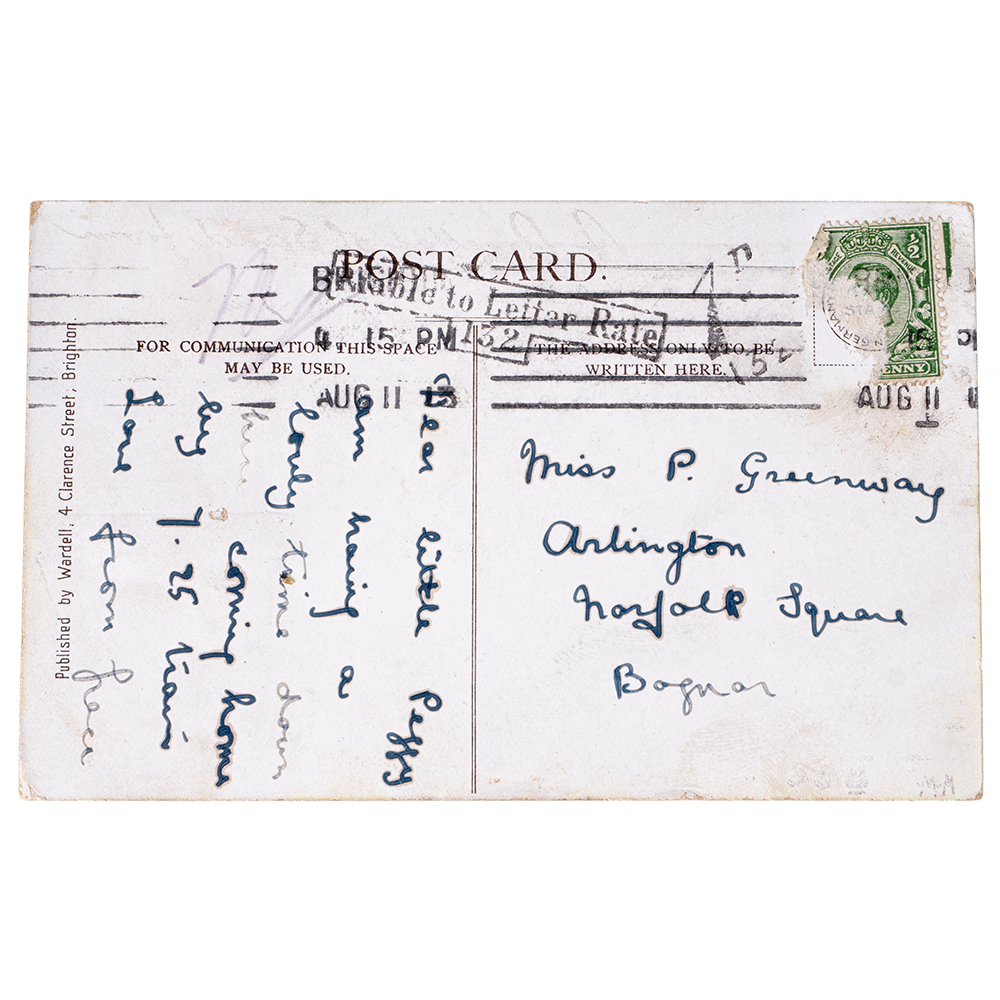 POST CARD.
BRIG
Liable to Letter Rate
132
4 15 PM
AUG 11 13
FOR COMMUNICATION THIS SPACE
MAY BE USED.
THE ADDRESS ONLY TO BE
WRITTEN HERE.
REVENUE
1/2
PENNY
AUG 11
Published by Wardell, 4 Clarence Street, Brighton.
Dear little Peggy
am having a
lovely time down
here
coming home
by 7.25 train
Love from
Miss P. Greenway
Arlington
Norfolk Square
Bognor